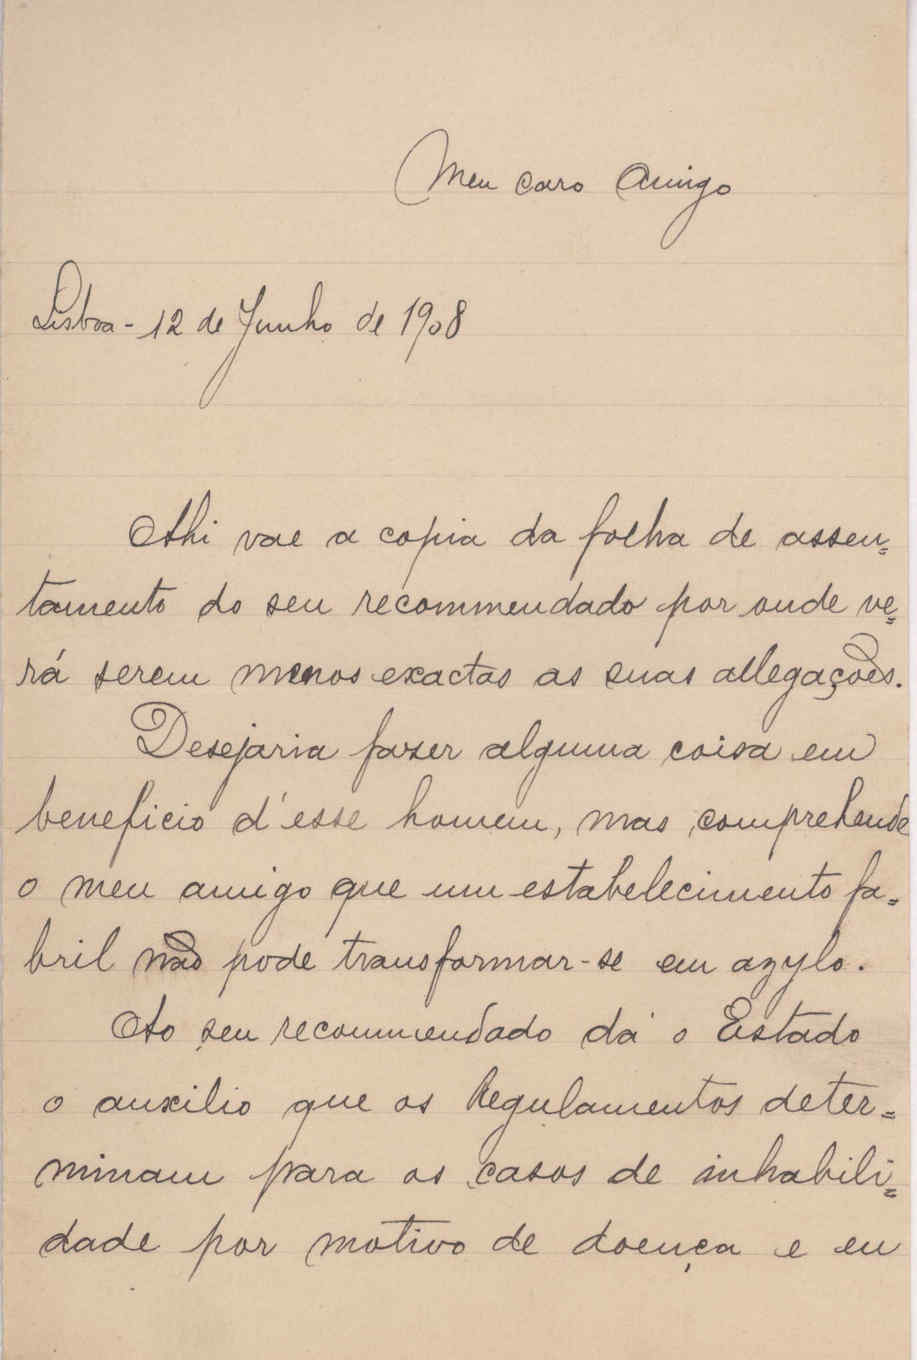 Meu caro Amigo
Lisboa - 12 de Junho de 1908
Ahi vae a copia da folha de assen=
tamento do seu recommendado por onde ve=
rá serem menos exactas as suas allegações.
Desejaria fazer alguma coisa em
beneficio d'esse homem, mas comprehende
o meu amigo que um estabelecimento fa=
bril não pode transformar-se em azylo.
Ao seu recommendado dá o Estado
o auxilio que os Regulamentos deter=
minam para os casos de inhabili=
dade por motivo de doença e eu